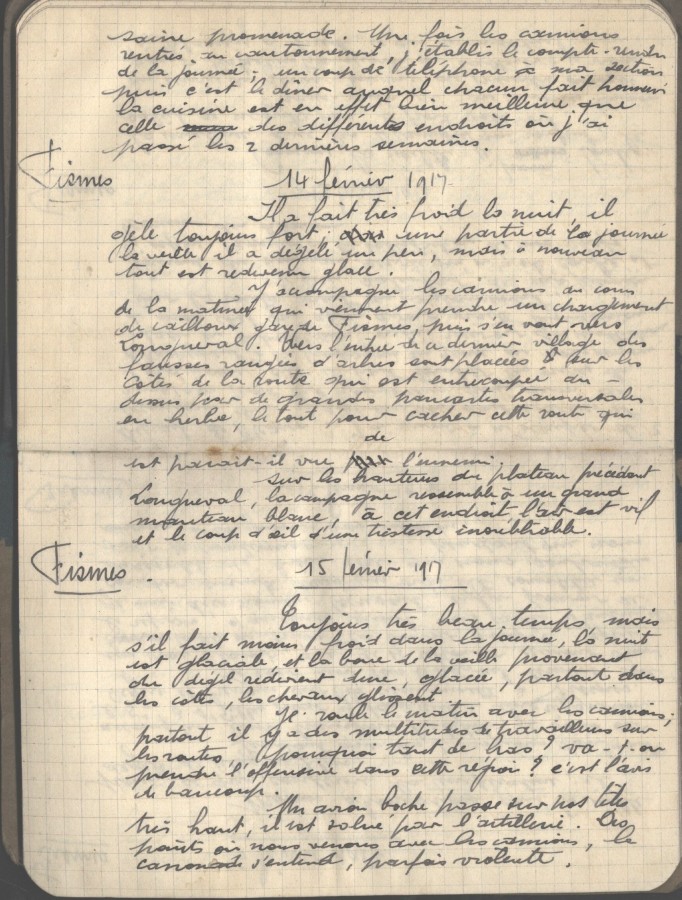 saine promenade. Une fois les camions
rentrés au cantonnement, j'établis le compte-rendu
de la journée; un coup de téléphone à ma section
puis c'est le dîner auquel chacun fait honneur
la cuisine est en effet bien meilleure que
celle des différents endroits où j'ai
passé les 2 dernières semaines.
Fismes 14 février 1917
Il a fait très froid la nuit, il
gèle toujours fort; une partie de la journée
la veille il a dégelé un peu, mais à nouveau
tout est redevenu glace.
J'accompagne les camions au cours
de la matinée qui viennent prendre un chargement
de cailloux gare de Fismes, puis s'en vont vers
Longueval. Vers l'entrée de ce dernier village des
fausses rangées d'arbres sont placées sur les
côtés de la route qui est entrecoupée au-
dessus par de grandes pancartes transversales
en herbe, le tout pour cacher cette route qui
est parait-il vue de l'ennemi.
Sur les hauteurs du plateau précédant
Longueval, la campagne ressemble à un grand
manteau blanc, à cet endroit l'air est vif
et le coup d'œil d'une tristesse inoubliable.
Fismes. 15 février 1917
Toujours très beau temps, mais
s'il fait moins froid dans la journée, la nuit
est glaciale, et la boue de la veille provenant
du dégel redevient dure, glacée, partout dans
les côtes, les chevaux glissent
Je roule le matin avec les camions;
partout il y a des multitudes de travailleurs sur
les routes, pourquoi tant de bras? va-t-on
prendre l'offensive dans cette région? c'est l'avis
de beaucoup.
Un avion boche passe sur nos têtes
très haut, il est salué par l'artillerie. Des
points où nous venons avec les camions, la
canonnade s'entend, parfois violente.